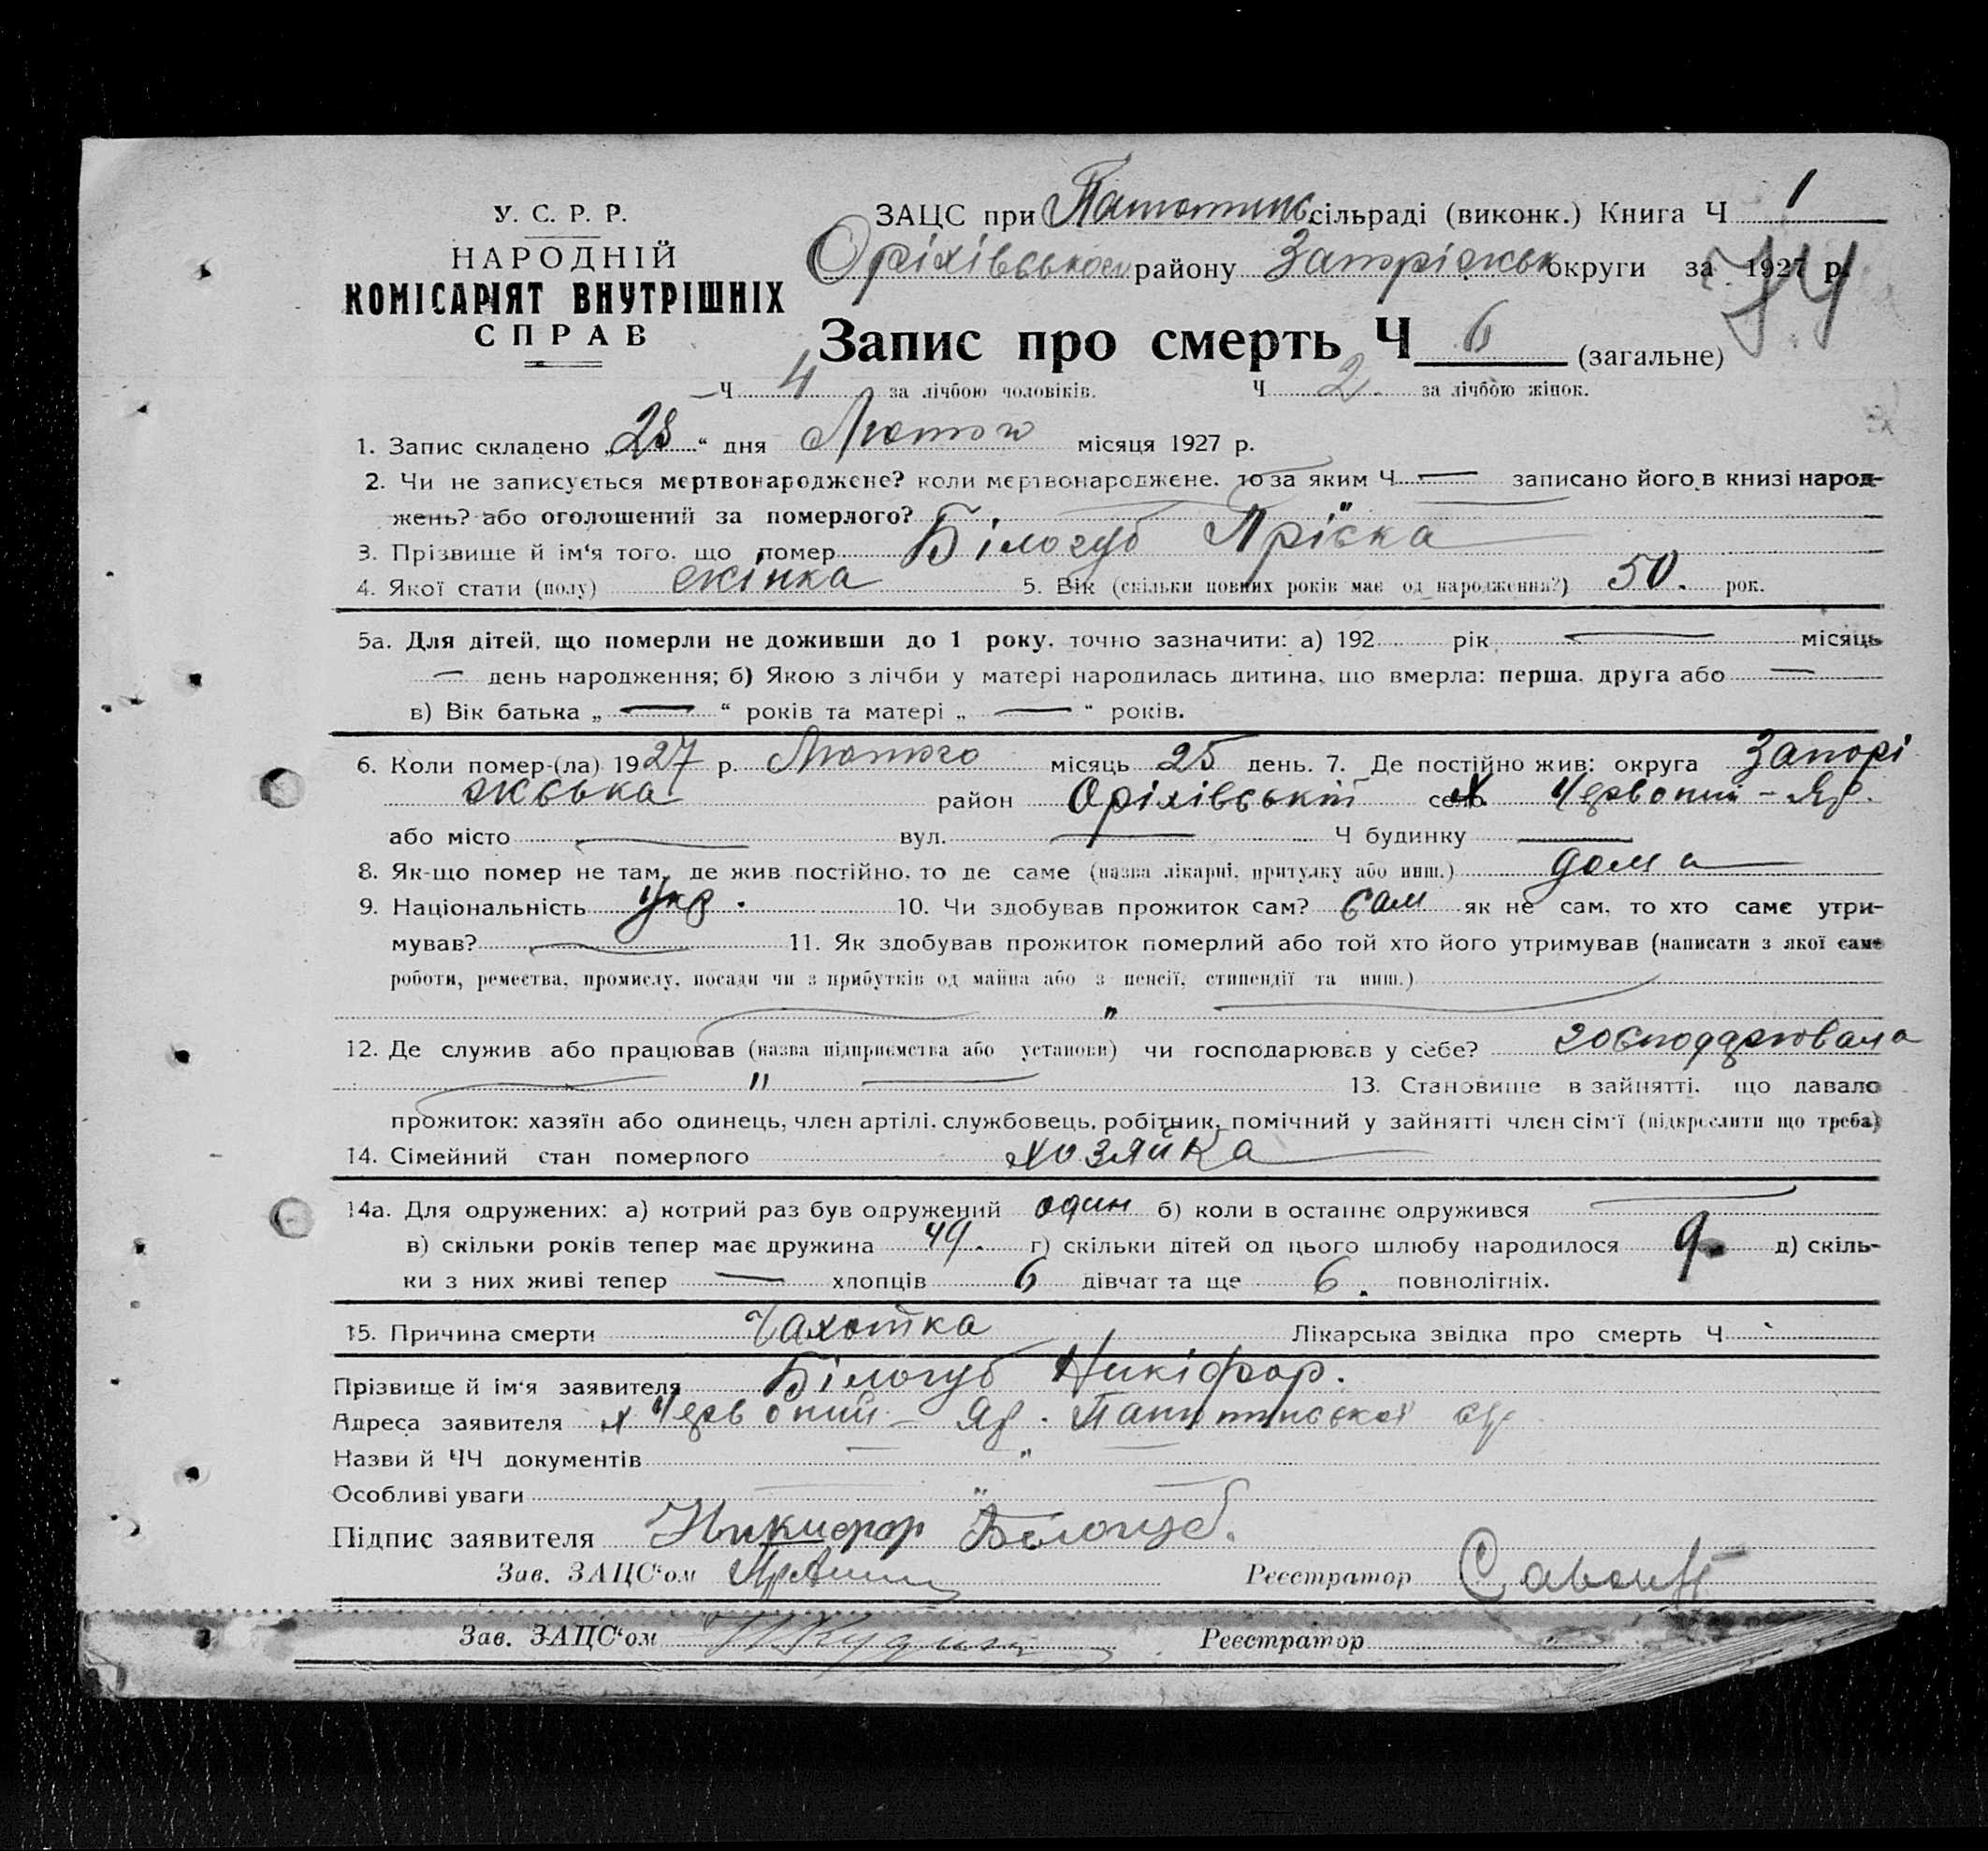 У. С. Р. Р.
НАРОДНІЙ
КОМІСАРІЯТ ВНУТРІШНІХ
СПРАВ
ЗАЦС при сільраді (виконк.) Книга Ч 1
Оріхівського району Запоріжськ округи за 1927 р.
74
Запис про смерть Ч 6 (загальне)
Ч 4 за лічбою чоловіків. Ч 2 за лічбою жінок.
1. Запис складено „28“ дня Лютого місяця 1927 р.
2. Чи не записується мертвонароджене? коли мертвонароджене, то за яким Ч — записано його в книзі народ-
жень? або оголошений за померлого? "
3. Прізвище й ім‘я того, що помер Білогуб Пріська
4. Якої стати (полу) жінка 5. Вік (скільки повних років має од народження?) 50. рок.
5а. Для дітей, що померли не доживши до 1 року, точно зазначити: а) 192 рік — місяць
— день народження; б) Якою з лічби у матері народилась дитина, що вмерла: перша, друга або —
в) Вік батька „ — “ років та матері „ — “ років.
6. Коли помер-(ла) 1927 р. Лютого місяць 25 день. 7. Де постійно жив: округа Запорі
жська район Оріхівський село х. Червоний – Яр.
або місто — вул. — Ч будинку —
8. Як-що помер не там, де жив постійно, то де саме (назва лікарні, притулку або инш.) дома
9. Національність Укр. 10. Чи здобував прожиток сам? сам як не сам, то хто саме утри-
мував? — 11. Як здобував прожиток померлий або той хто його утримував (написати з якої саме
роботи, ремества, промислу, посади чи з прибутків од майна або з пенсії, стипендії та инш.)
— " —
12. Де служив або працював (назва підприємства або установи) чи господарював у себе? господарювала
— " — 13. Становище в зайнятті, що давало
прожиток: хазяїн або одинець, член артілі, службовець, робітник, помічний у зайнятті член сім‘ї (підкреслити що треба)
14. Сімейний стан померлого хозяйка
14а. Для одружених: а) котрий раз був одружений один б) коли в останнє одружився —
в) скільки років тепер має дружина 49. г) скільки дітей од цього шлюбу народилося 9. д) скіль-
ки з них живі тепер — хлопців 6 дівчат та ще 6. повнолітніх.
15. Причина смерти Чахотка Лікарська звідка про смерть Ч
Прізвище й ім‘я заявителя Білогуб Никіфор.
Адреса заявителя х Червоний – Яр.
Назви й ЧЧ документів — " —
Особливі уваги — " —
Підпис заявителя Никифор Білогуб.
Зав. ЗАЦС‘ом Реєстратор
Зав. ЗАЦС‘ом Реєстратор